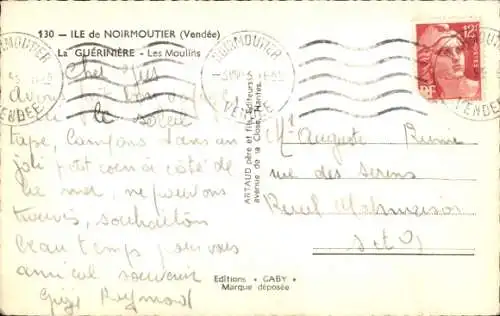 130 - ILE de NOIRMOUTIER (Vendée)
La GUÉRINIÈRE - Les Moulins
NOIRMOUTIER
VENDÉE
NOIRMOUTIER
VENDÉE
12F
POSTES
RF
Cher
le soleil
tape, Campons dans un
joli petit coin à côté de
la mer, ne pouvons
souhaitons
beau temps pour vous
amical souvenir
Raymond
ARTAUD père et fils, Éditeurs
avenue de la Close, Nantes
Auguste
rue des
Rueil Malmaison
S et O
Editions • GABY •
Marque déposée